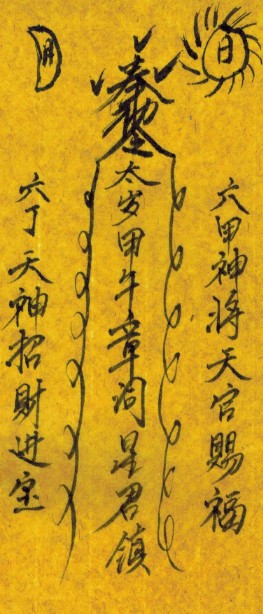 日
六甲神将天官賜福
奉
太岁甲午章词星君镇
月
六丁天神招財进宝